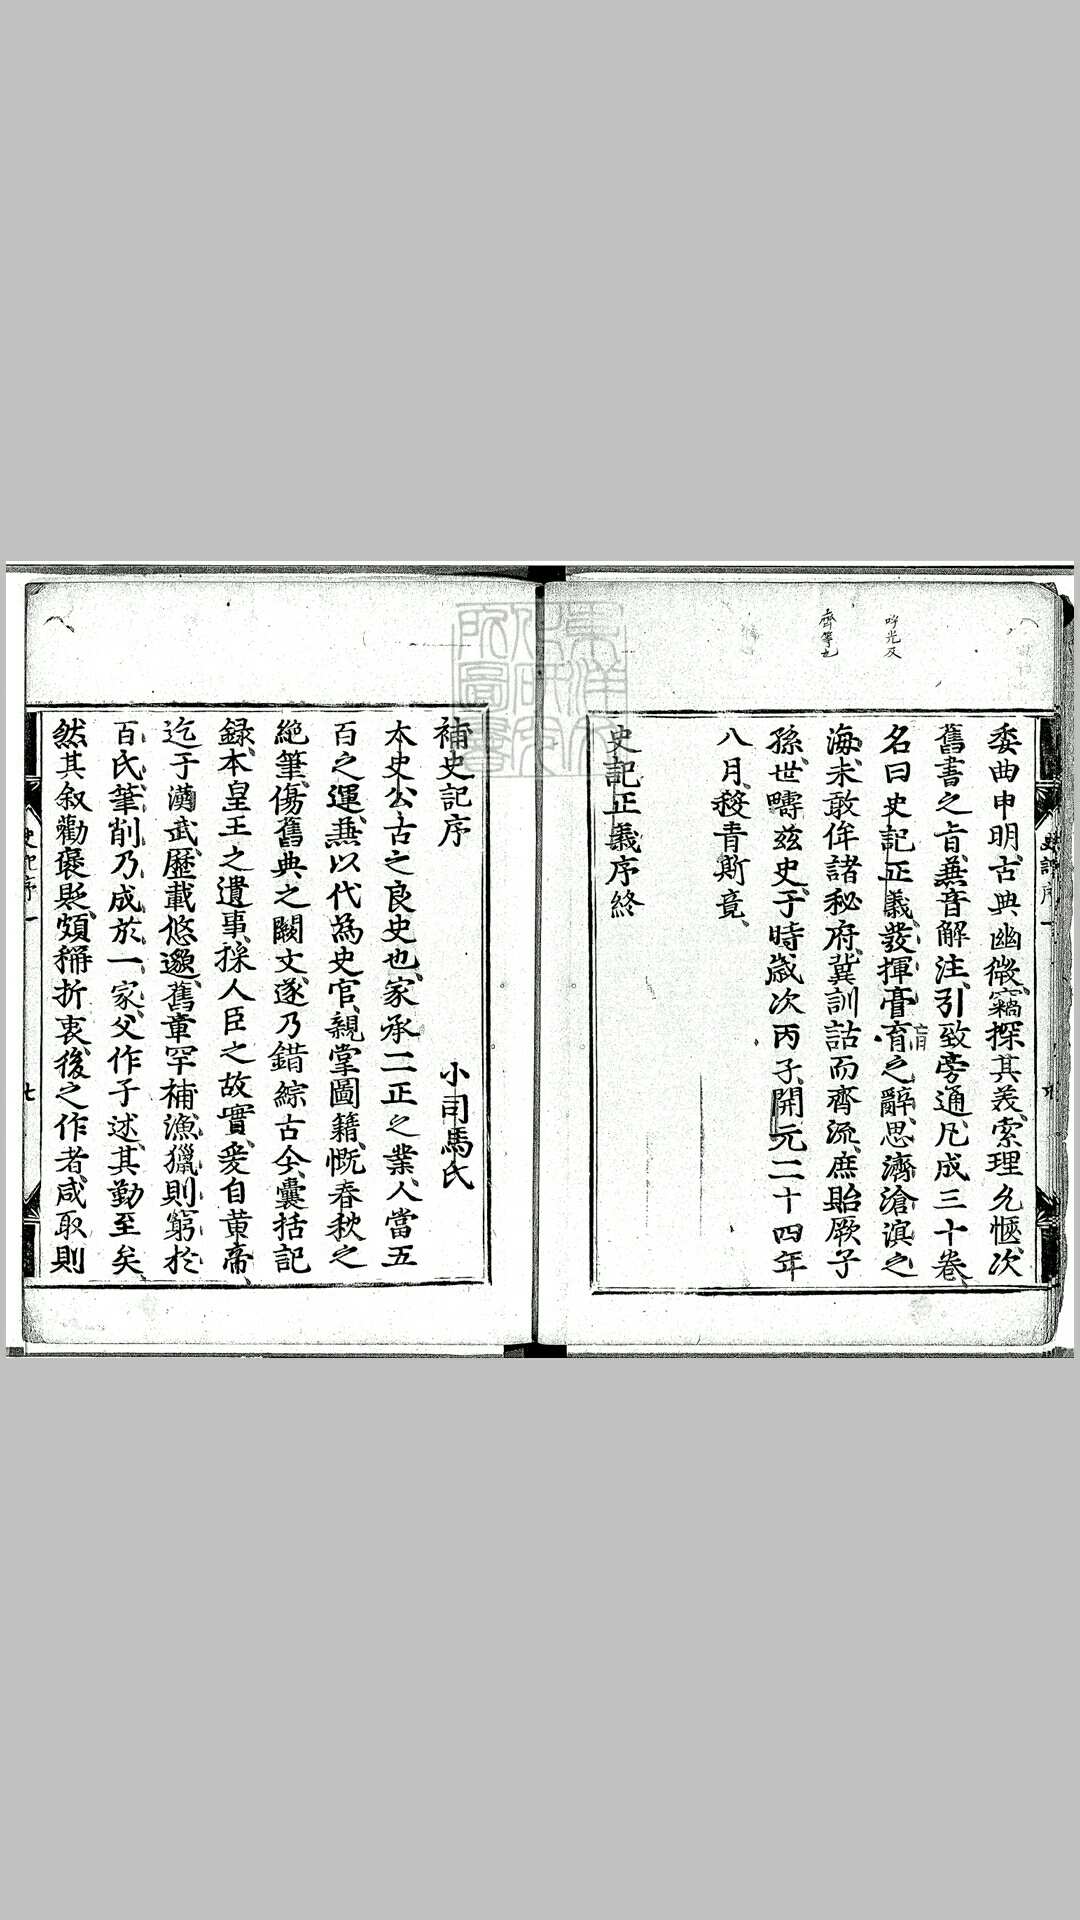 委曲申明古典幽微竊探其義索理允愜次
舊書之旨兼音解注引致旁通凡成三十卷
名曰史記正義發揮膏肓之辭思濟滄溟之
海未敢侔諸秘府冀訓詁而齊流庶貽厥子
孫世疇茲史于時歲次丙子開元二十四年
八月殺青斯竟
史記正義序終
補史記序
小司馬氏
太史公古之良史也家承二正之業人當五
百之運兼以代為史官親掌圖籍慨春秋之
絕筆傷舊典之闕文遂乃錯綜古今囊括記
録本皇王之遺事採人臣之故實爰自黄帝
迄于漢武歷載悠邈舊章罕補漁獵則窮於
百氏筆削乃成於一家父作子述其勤至矣
然其叙勸褒貶頗稱折衷後之作者咸取則
史記序一
七